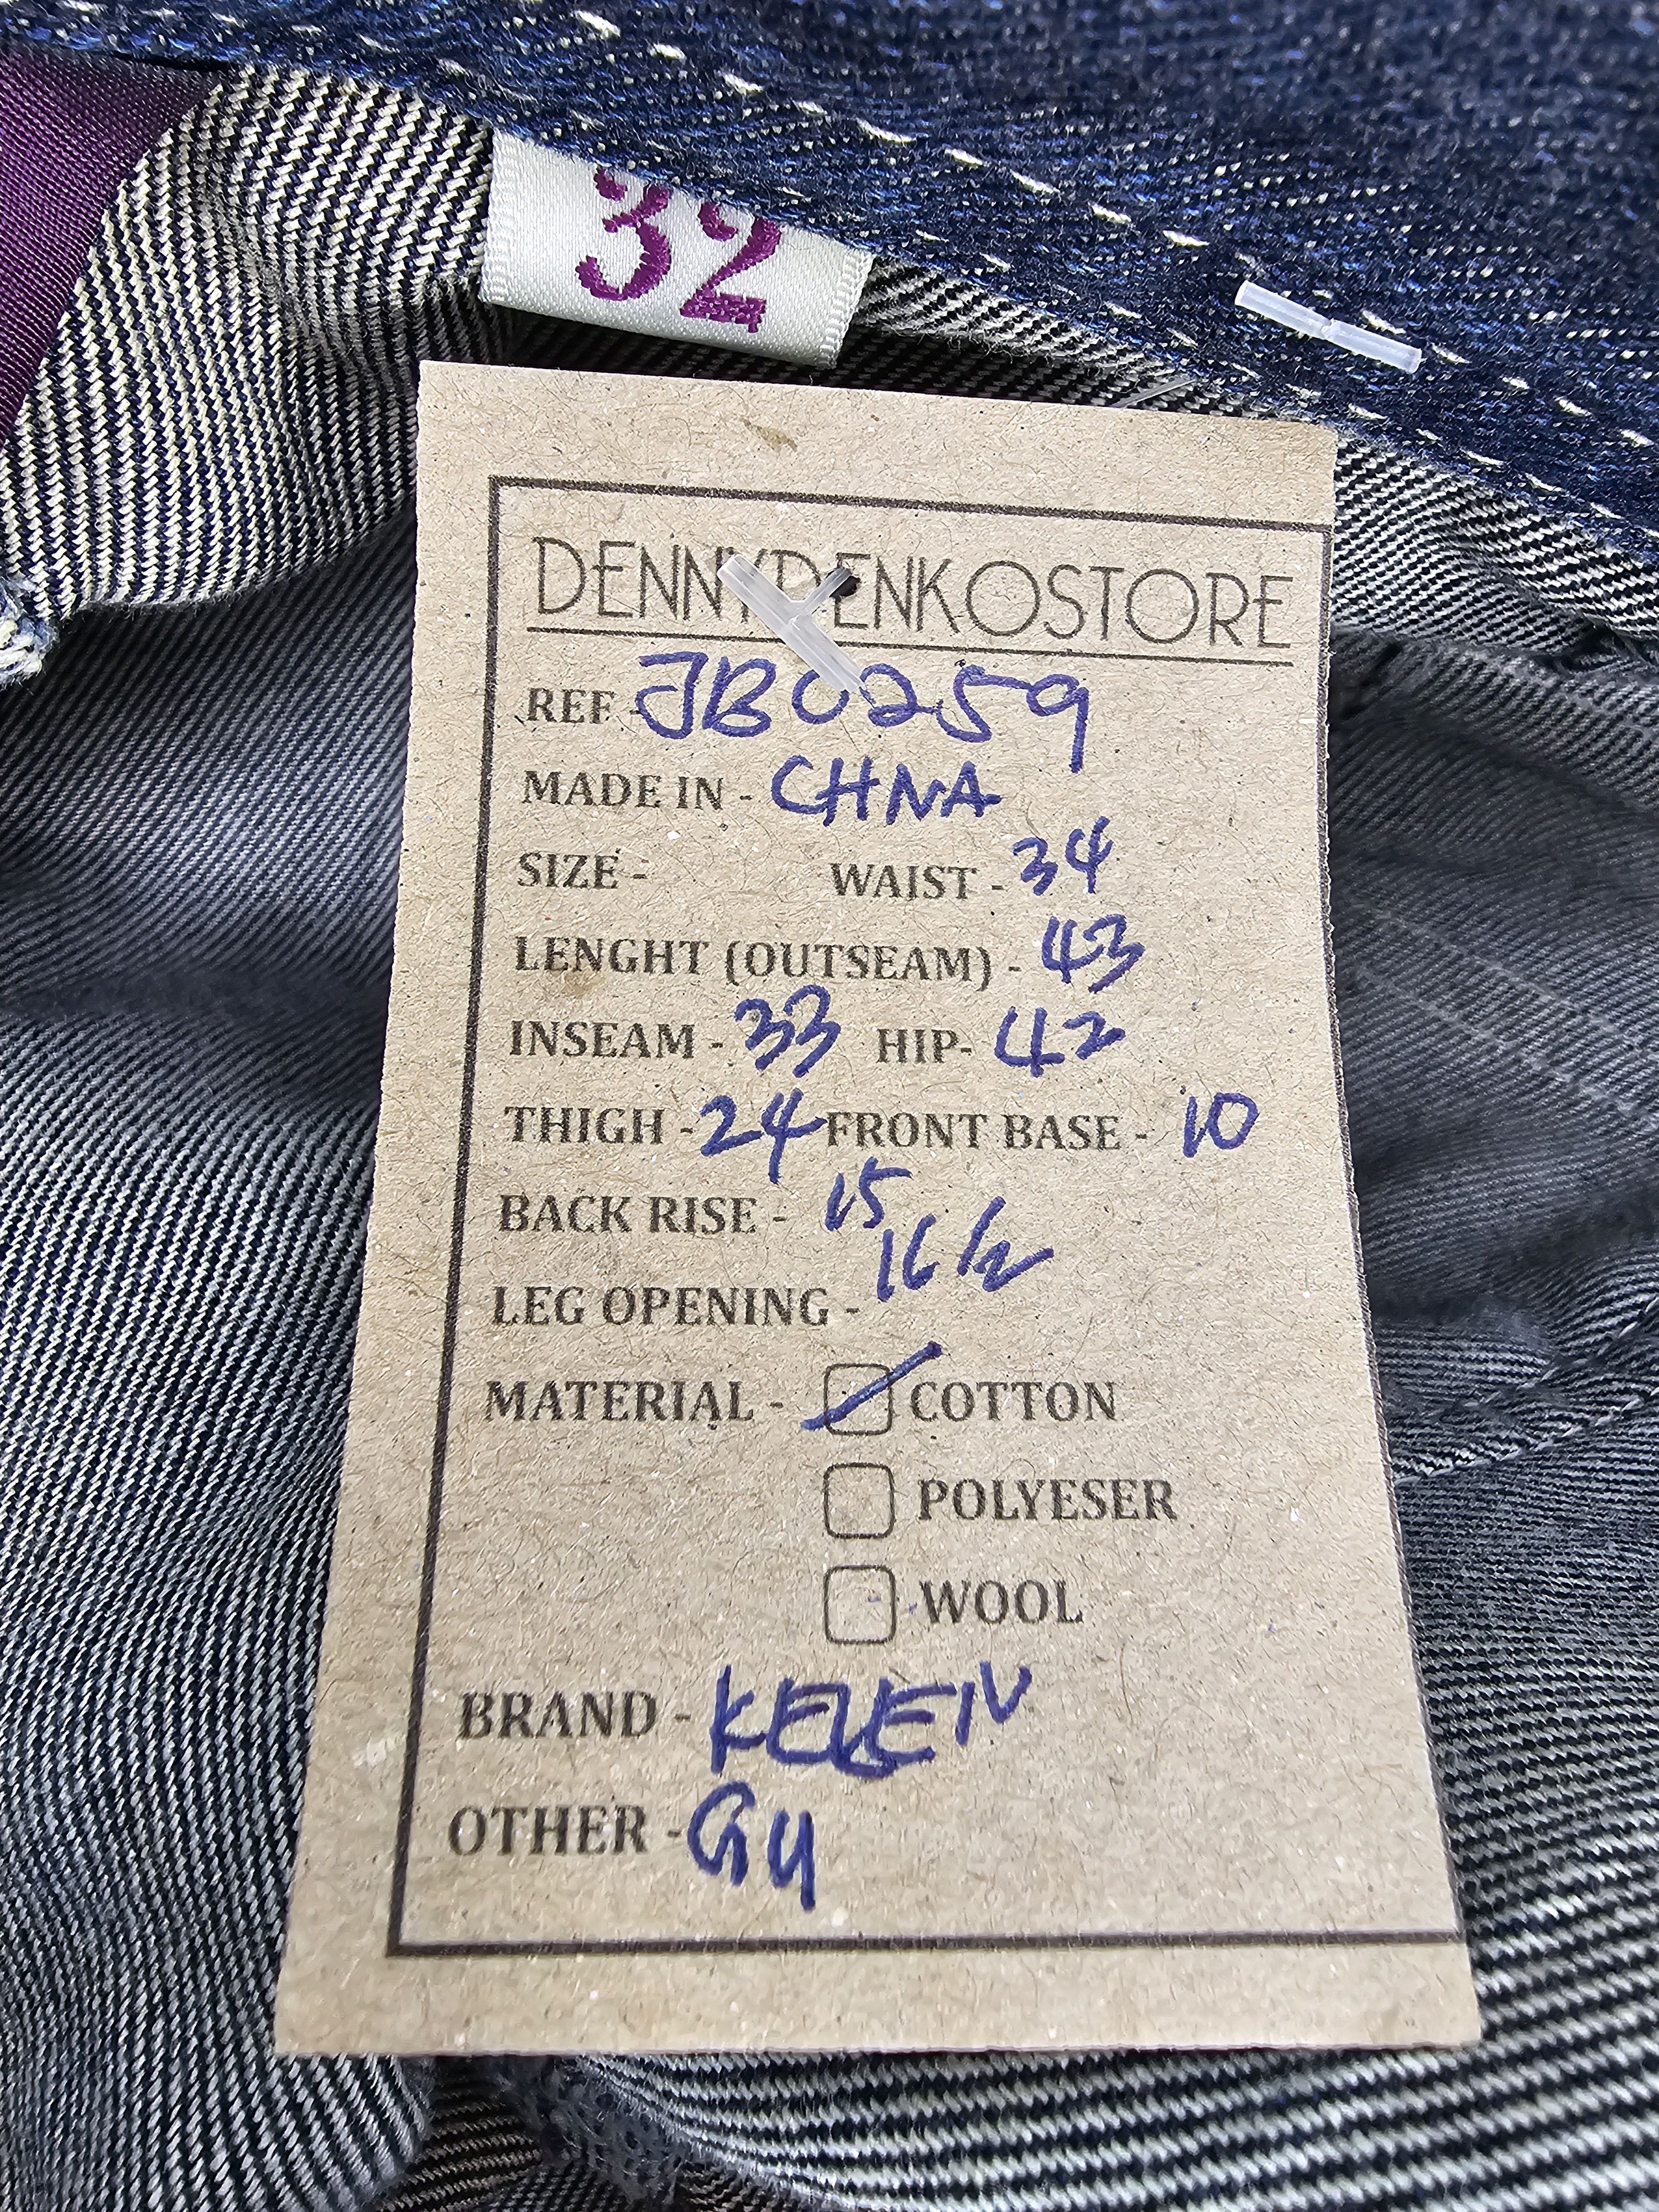 32
DENNYDENKOSTORE
REF - JB0259
MADE IN - CHNA
SIZE - WAIST - 34
LENGHT (OUTSEAM) - 43
INSEAM - 33 HIP- 42
THIGH - 24 FRONT BASE - 10
BACK RISE - 15
16 1/2
LEG OPENING -
MATERIAL - COTTON
POLYESER
WOOL
BRAND -
OTHER -